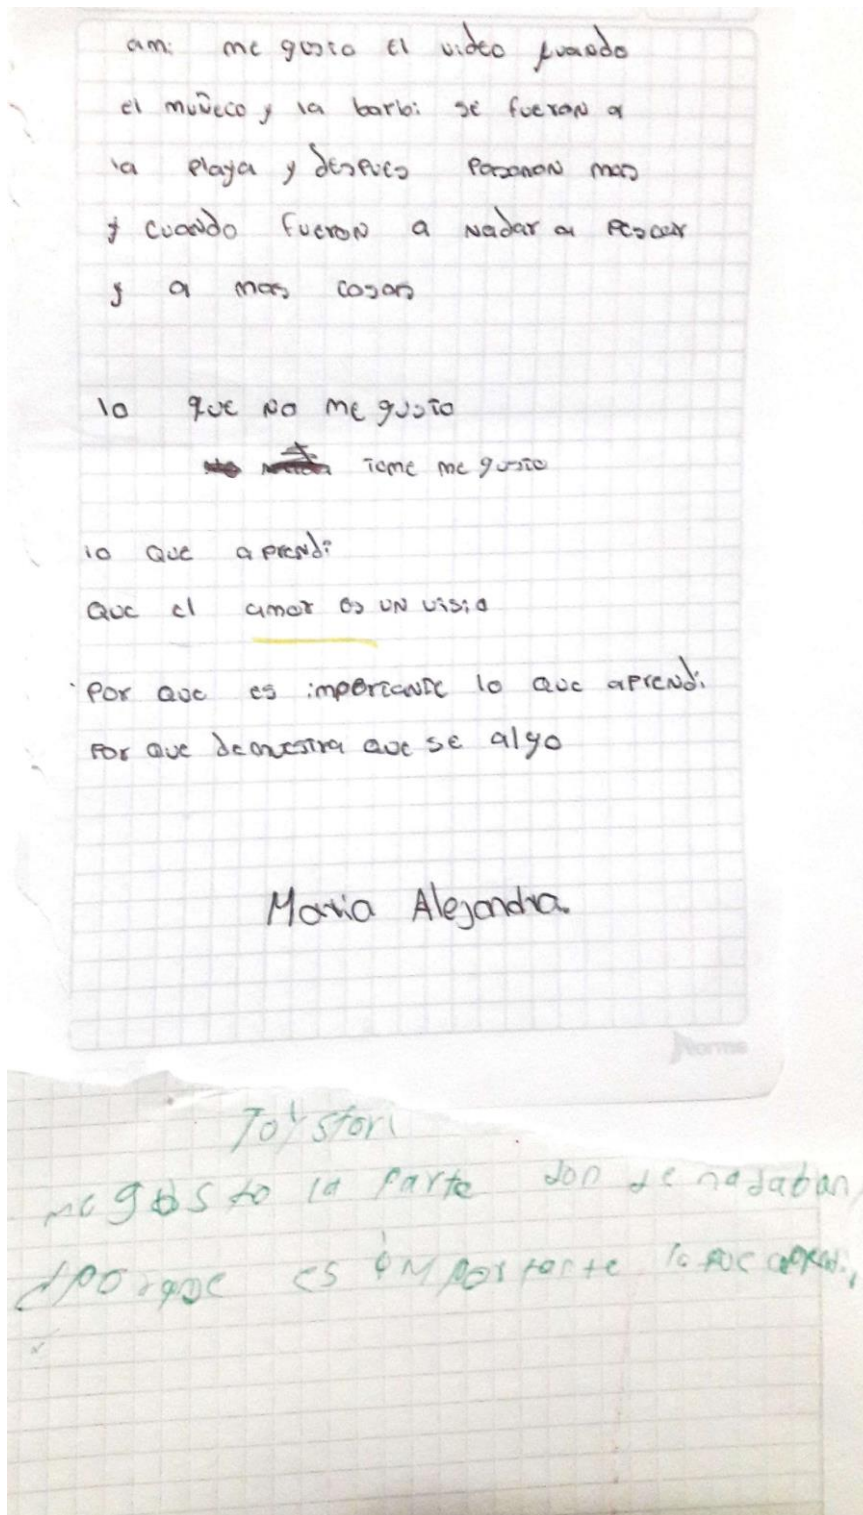 ami me gusto el video cuando
el muñeco y la barbi se fueron a
la playa y despues pasaron mas
y cuando fueron a nadar a pescar
y a mas cosas
lo que no me gusto
me gusto
lo que aprendi
que el amor es un visio
Por que es importante lo que aprendi
Por que demuestra que se algo
Maria Alejandra.
Norma
Toy stori
me gusto la parte don de nadaban
¿porque es importante lo que aprendi